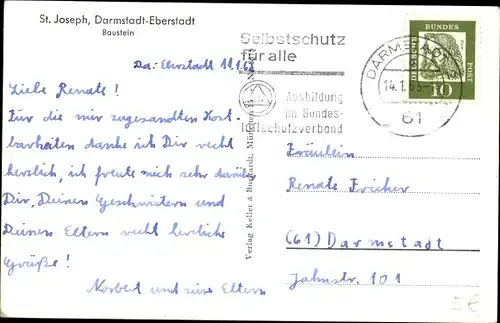 St. Joseph, Darmstadt-Eberstadt
Baustein
Da.-Eberstadt 11.1.63
Liebe Renate!
Für die mir zugesandten Kost-
barkeiten danke ich Dir recht
herzlich, ich freute mich sehr darüber.
Dir, Deinen Geschwistern und
Deinen Eltern recht herzliche
Grüße!
Norbert und seine Eltern
Verlag Keller & Burkardt, München
Selbstschutz
für alle
Ausbildung
im Bundes-
luftschutzverband
DARMSTADT
14.1.63
61
DEUTSCHE BUNDESPOST
10
Fräulein
Renate Fricker
(61) Darmstadt
Jahnstr. 101
5€